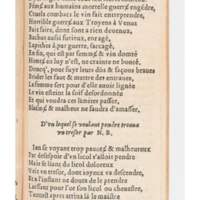 Péres aux humains mortelle guerre engédre,
Cruels combatz le vin fait entreprendre,
Horrible guerre aux Troyens à Venus
Fait faire, dont sont à rien devenus,
Bachus aussi furieux, enragé,
Lapithes à par guerre, saccagé,
En fin, qui est par femme & vin domté
Honneur au luy n'est, ne crainte ne bonté,
Doncq', pour fuyr leurs dôs & façons braues
Brider les faut & mettre des entraues,
La femme ordonne à se unir loyauté
Le vin esteint la soif desordonnée
Et qui voudra ces limites passer,
Blasmé & malheur ne faudra d'amasser

D'vn lequel se voulant pendre trouua
vn tresor par N. B.

Ien se voyant trop pauure & malheureux
Par desespoir d'vn licol s'alloit pendre
Mais se liant du licol doloreux
Voit vn tresor, dont ioyeux va descendre,
Et à l'instant ne doute de le prendre
Laissant pour l'or son licol ou cheuestre,
Tantost apres arriua là le maistre